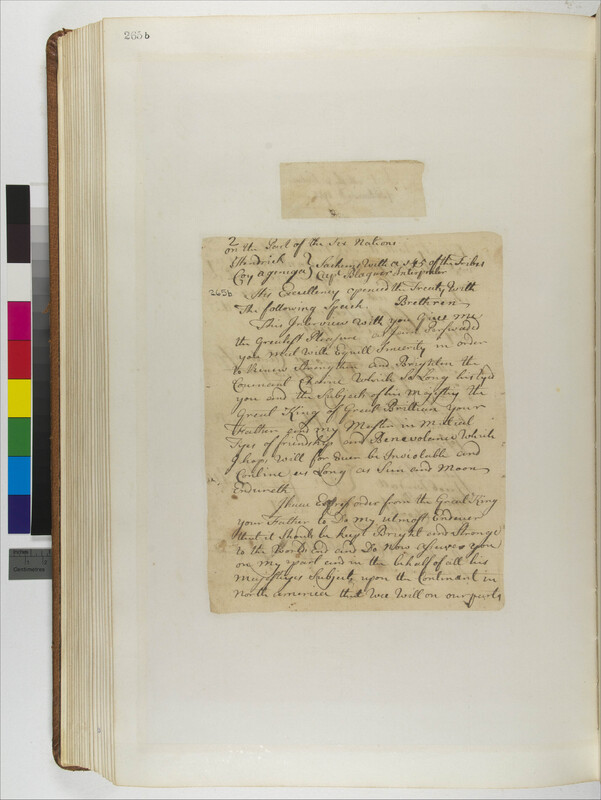 265b
2
on the Part of the Six Nations
Hendrick } Sachims with a 145 of the Tribes
Coyagunya } Capt Blaquer Interpreter
265b His Excellency opened the Treaty with
The following Speich. Brethren
This Interview with you Gives Me
the Greatest Pleasure as I am Perswaded
you meet with Equill Sincerity in order
to Renew Strengthen and Brighten the
Covenant Chaine Which So Long has tyed
you and the Subjects of his Majesty the
Great King of Great Brittian your
Father and my Master in Mutial
Tyes of friendship and Benevolence Which
I hope Will for Ever be Inviolable and
Contine as Long as Sun and Moon
Endureth
I have Express order from the Great King
your Father to Do my utmost Endever
that it Should be kept Bright and Stronge
to the Worlds End and Do Now asure you
one my part and in the behalf of all his
Magesteyes Subjects upon the Continant in
North America that Wee Will on our parts